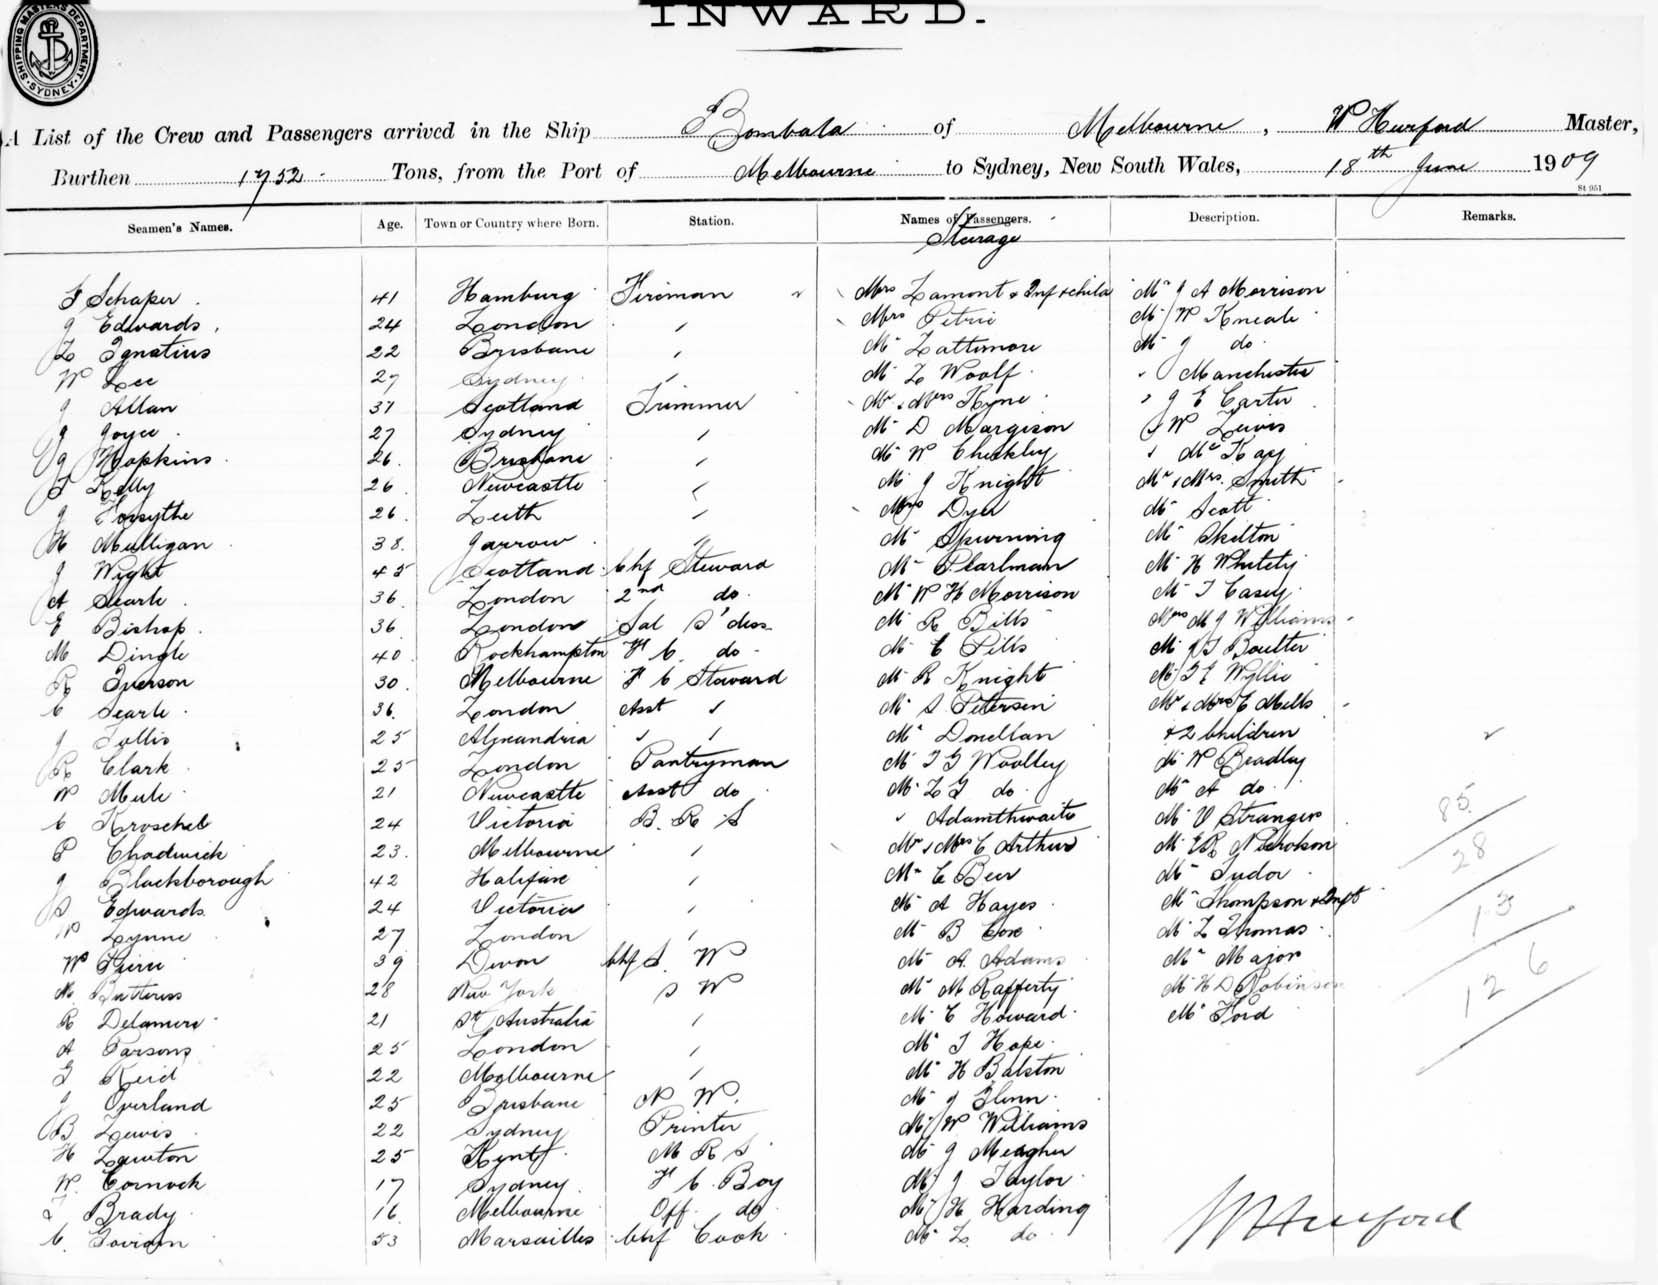 SHIPPING MASTERS DEPARTMENT SYDNEY
INWARD.
A List of the Crew and Passengers arrived in the Ship Bombala of Melbourne, W Hurford Master,
Burthen 1752 Tons, from the Port of Melbourne to Sydney, New South Wales, 18th June 1909
St 951
Seamen's Names. Age. Town or Country where Born. Station. Names of Passengers. Description. Remarks.
Steerage
F Schaper 41 Hamburg Fireman Mrs Lamont & Inf & child Mr J A Morrison
J Edwards 24 London " Mrs Petrie Mr W Kneale
L Ignatius 22 Brisbane " Mr Lattimore Mr J do
W Lee 27 Sydney " Mr L Woolf " Manchester
J Allan 31 Scotland Trimmer Mr & Mrs Kyne " J E Carter
J Joyce 27 Sydney " Mr D Margison " W Lewis
G Hopkins 26 Brisbane " Mr W Checkley " McKay
T Kelly 26 Newcastle " Mr J Knight Mr & Mrs Smith
J Forsythe 26 Leith " Mrs Dyer Mr Scott
H Mulligan 38 Jarrow " Mr Spurning Mr Skelton
J Wight 45 Scotland Chf Steward Mr Pearlman Mr H Whitely
A Searle 36 London 2nd do Mr W H Morrison Mr T Casey
E Bishop 36 London Sal S'dess Mr R Bills Mrs M J Williams
M Dingle 40 Rockhampton F C do Mr C Pills Mr J T Boulter
R Iverson 30 Melbourne F C Steward Mr R Knight Mr Wyllie
C Searle 36 London Asst " Mr S Petersen Mr & Mrs C Mells
J Tollis 25 Alexandria " " Mr Donellan & 2 children
R Clark 25 London Pantryman Mr T G Woolley Mr W Bradley
W Mule 21 Newcastle Asst do Mr L G do Mr A do
C Kroschel 24 Victoria B. R. S " Adamthwaite Mr V Stranger
P Chadwick 23 Melbourne " Mr & Mrs C Arthur Mr E R Nicholson
J Blackborough 42 Halifax " Mr C Beer Mr Tudor
S Edwards 24 Victoria " Mr A Hayes Mr Thompson & Inft
W Lynne 27 London " Mr B Cox Mr L Thomas
W Peirce 39 Devon Chf S. W Mr A Adams Mr Major
N Buttress 28 New York S W Mr M Rafferty Mr H D Robinson
R Delamere 21 Sth Australia " Mr C Howard Mr Ford
A Parsons 25 London " Mr T Hope
G Reid 22 Melbourne " Mr H Balston
J Overland 25 Brisbane N W. Mr J Glenn
B Lewis 22 Sydney Printer Mr W Williams
H Lawton 25 Kent M R S Mr J Meagher
W. Cornock 17 Sydney F C Boy Mr J Taylor
Brady 16 Melbourne Off do Mr H Harding
C 53 Marseilles Chf Cook Mr L do
85
28
13
126
W Hurford